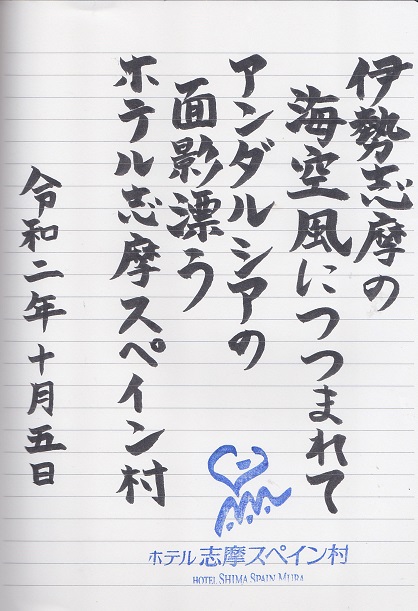 伊勢志摩の
海空風につつまれて
アンダルシアの
面影漂う
ホテル志摩スペイン村
令和二年十月五日
ホテル 志摩スペイン村
HOTEL SHIMA SPAIN MURA